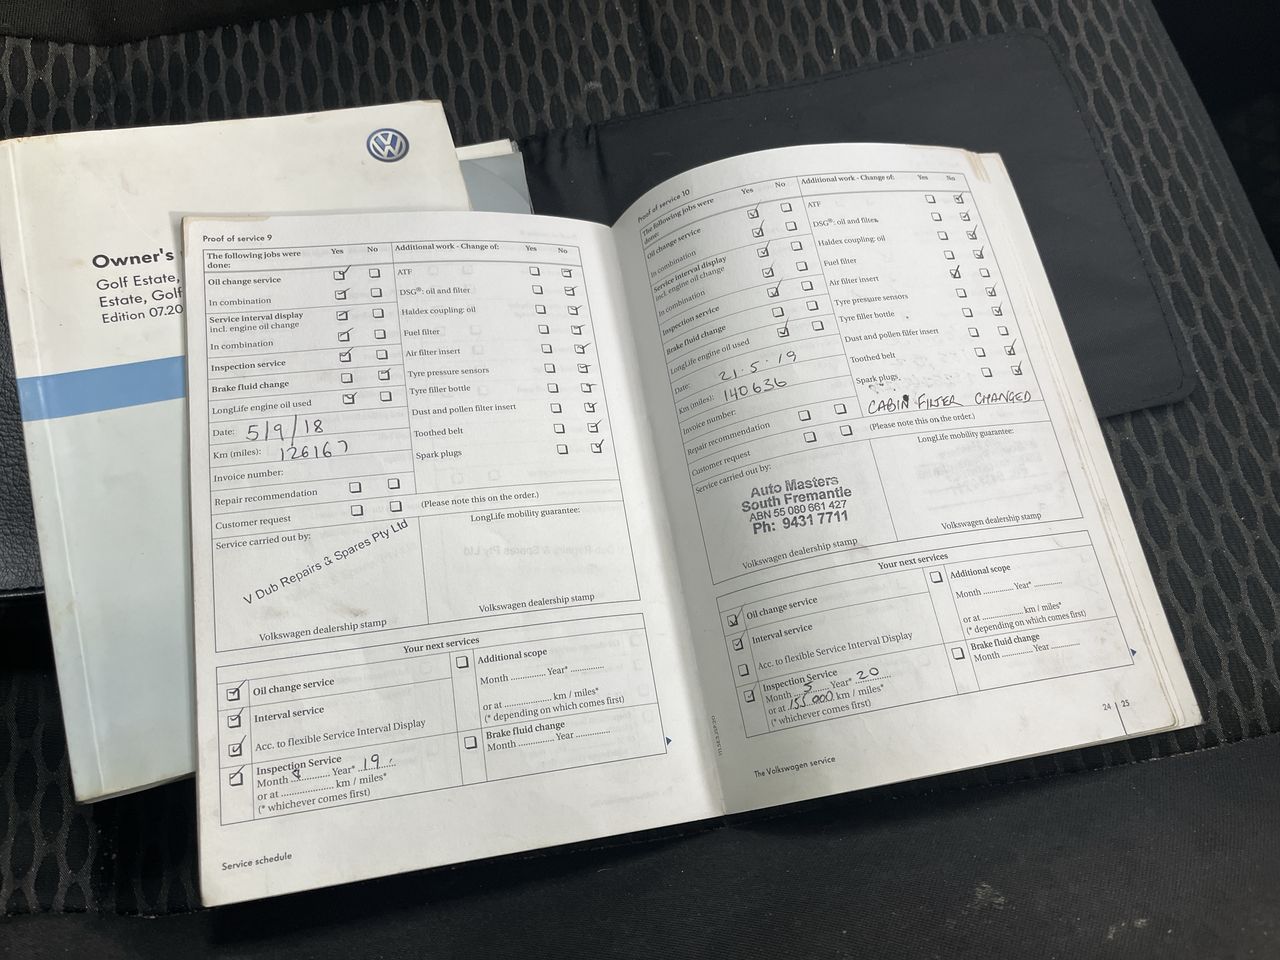 Owner's
Golf Estate,
Estate, Golf
Edition 07.20
Proof of service 9
The following jobs were done:
Yes No
Additional work - Change of:
Yes No
Oil change service
In combination
Service interval display
incl. engine oil change
In combination
Inspection service
Brake fluid change
LongLife engine oil used
Date: 5/9/18
Km (miles): 126167
Invoice number:
Repair recommendation
Customer request
ATF
DSG®: oil and filter
Haldex coupling: oil
Fuel filter
Air filter insert
Tyre pressure sensors
Tyre filler bottle
Dust and pollen filter insert
Toothed belt
Spark plugs
(Please note this on the order.)
Service carried out by:
V Dub Repairs & Spares Pty Ltd
Volkswagen dealership stamp
LongLife mobility guarantee:
Volkswagen dealership stamp
Your next services
Oil change service
Interval service
Acc. to flexible Service Interval Display
Inspection Service
Month 8 Year* 19
or at .................. km / miles*
(* whichever comes first)
Additional scope
Month ............ Year* ............
or at ............... km / miles*
(* depending on which comes first)
Brake fluid change
Month ............ Year ............
Service schedule
Proof of service 10
The following jobs were
done:
Yes No
Additional work - Change of:
Yes No
Oil change service
In combination
Service interval display
incl. engine oil change
In combination
Inspection service
Brake fluid change
LongLife engine oil used
Date: 21.5.19
Km (miles): 140636
Invoice number:
Repair recommendation
Customer request
ATF
DSG®: oil and filter
Haldex coupling: oil
Fuel filter
Air filter insert
Tyre pressure sensors
Tyre filler bottle
Dust and pollen filter insert
Toothed belt
Spark plugs
CABIN FILTER CHANGED
(Please note this on the order.)
Service carried out by:
Auto Masters
South Fremantle
ABN 55 080 661 427
Ph: 9431 7711
Volkswagen dealership stamp
LongLife mobility guarantee:
Volkswagen dealership stamp
Your next services
Oil change service
Interval service
Acc. to flexible Service Interval Display
Inspection Service
Month 5 Year* 20
or at 155.000 km / miles*
(* whichever comes first)
Additional scope
Month ............ Year* ............
or at ............... km / miles*
(* depending on which comes first)
Brake fluid change
Month ............ Year ............
The Volkswagen service
24 25